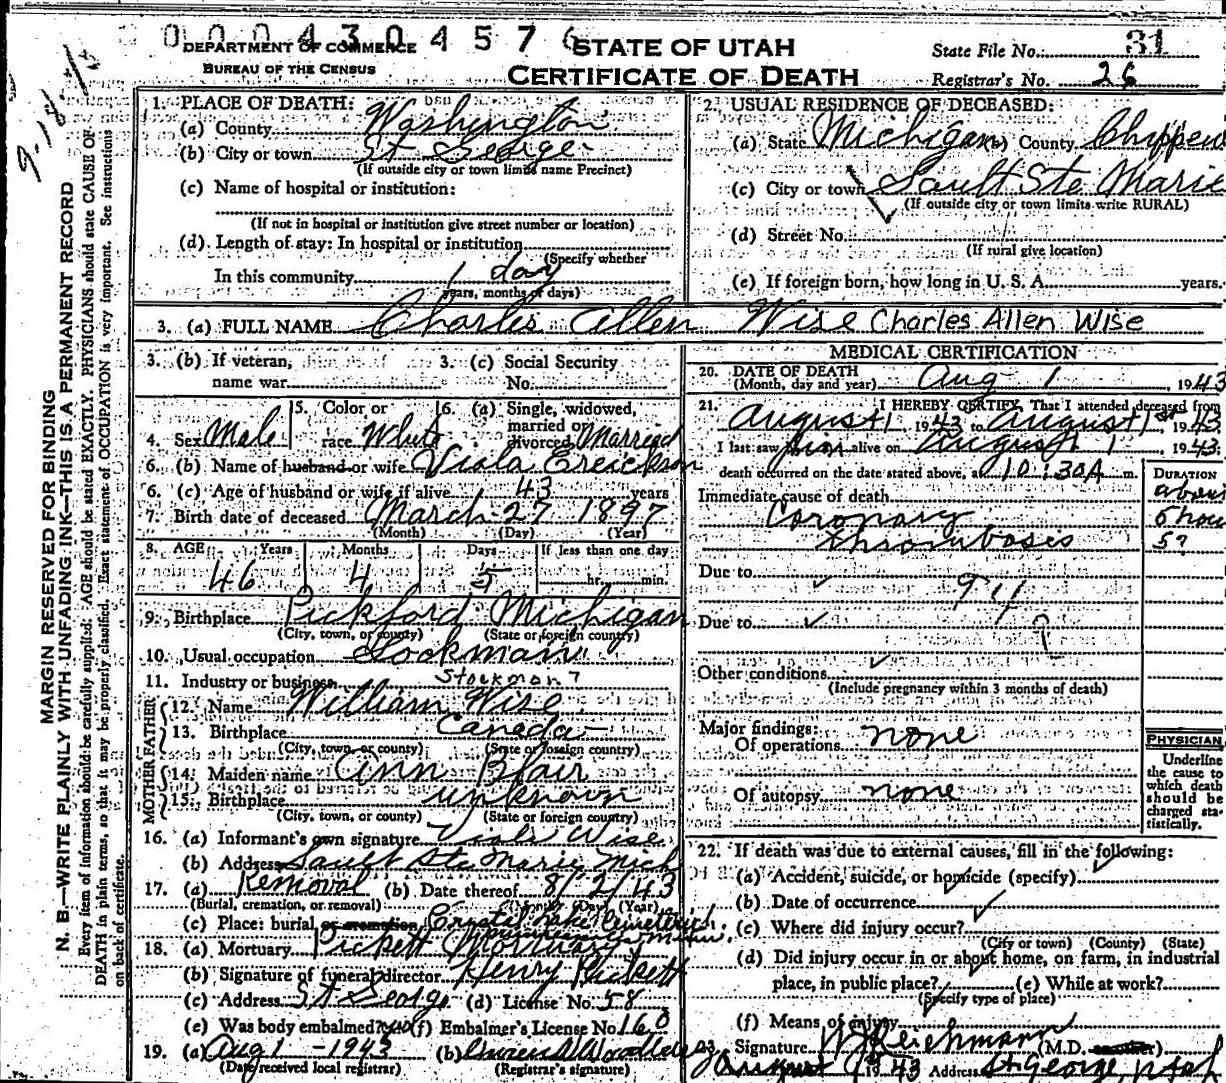 0004304576
DEPARTMENT OF COMMERCE
BUREAU OF THE CENSUS
STATE OF UTAH
CERTIFICATE OF DEATH
State File No. 31
Registrar's No. 26
MARGIN RESERVED FOR BINDING
N. B.—WRITE PLAINLY WITH UNFADING INK—THIS IS A PERMANENT RECORD
Every item of information should be carefully supplied. AGE should be stated EXACTLY. PHYSICIANS should state CAUSE OF
DEATH in plain terms, so that it may be properly classified. Exact statement of OCCUPATION is very important. See instructions
on back of certificate.
1. PLACE OF DEATH:
(a) County Washington
(b) City or town St George
(If outside city or town limits name Precinct)
(c) Name of hospital or institution:
(If not in hospital or institution give street number or location)
(d) Length of stay: In hospital or institution
(Specify whether
In this community 1 day
years, months or days)
2. USUAL RESIDENCE OF DECEASED:
(a) State Michigan (b) County Chippew
(c) City or town Sault Ste Marie
(If outside city or town limits write RURAL)
(d) Street No.
(If rural give location)
(e) If foreign born, how long in U. S. A. years.
3. (a) FULL NAME Charles Allen Wise Charles Allen Wise
3. (b) If veteran,
name war
3. (c) Social Security
No.
4. Sex Male
5. Color or
race White
6. (a) Single, widowed,
married or
divorced Married
6. (b) Name of husband or wife Viola Ereickson
6. (c) Age of husband or wife if alive 43 years
7. Birth date of deceased March 27 1897
(Month) (Day) (Year)
8. AGE Years Months Days If less than one day
46 4 5 hr. min.
9. Birthplace Pickford Michigan
(City, town, or county) (State or foreign country)
10. Usual occupation Stockman
11. Industry or business Stockman?
FATHER
12. Name William Wise
13. Birthplace Canada
(City, town, or county) (State or foreign country)
MOTHER
14. Maiden name Ann Blair
15. Birthplace unknown
(City, town, or county) (State or foreign country)
16. (a) Informant's own signature Viola Wise
(b) Address Sault Ste Marie Mich
17. (a) Removal (b) Date thereof 8/2/43
(Burial, cremation, or removal) (Month) (Day) (Year)
(c) Place: burial or cremation Crystal Lake Cemetery
18. (a) Mortuary Pickett Mortuary
(b) Signature of funeral director Henry Pickett
(c) Address St George (d) License No. 58
(e) Was body embalmed? (f) Embalmer's License No. 160
19. (a) Aug 1 - 1943 (b)
(Date received local registrar) (Registrar's signature)
MEDICAL CERTIFICATION
20. DATE OF DEATH
(Month, day and year) Aug 1, 1943
21. I HEREBY CERTIFY, That I attended deceased from
August 1, 1943 to August 1st 1943
I last saw him alive on August 1, 1943
death occurred on the date stated above, at 10:30 A m.
DURATION
Immediate cause of death
Coronary
thrombosis
Due to
94
Due to
Other conditions
(Include pregnancy within 3 months of death)
Major findings:
Of operations none
Of autopsy none
PHYSICIAN
Underline
the cause to
which death
should be
charged sta-
tistically.
22. If death was due to external causes, fill in the following:
(a) Accident, suicide, or homicide (specify)
(b) Date of occurrence
(c) Where did injury occur?
(City or town) (County) (State)
(d) Did injury occur in or about home, on farm, in industrial
place, in public place? (e) While at work?
(Specify type of place)
(f) Means of injury
23. Signature Reichmann (M.D.
August 1943 Address St George, Utah